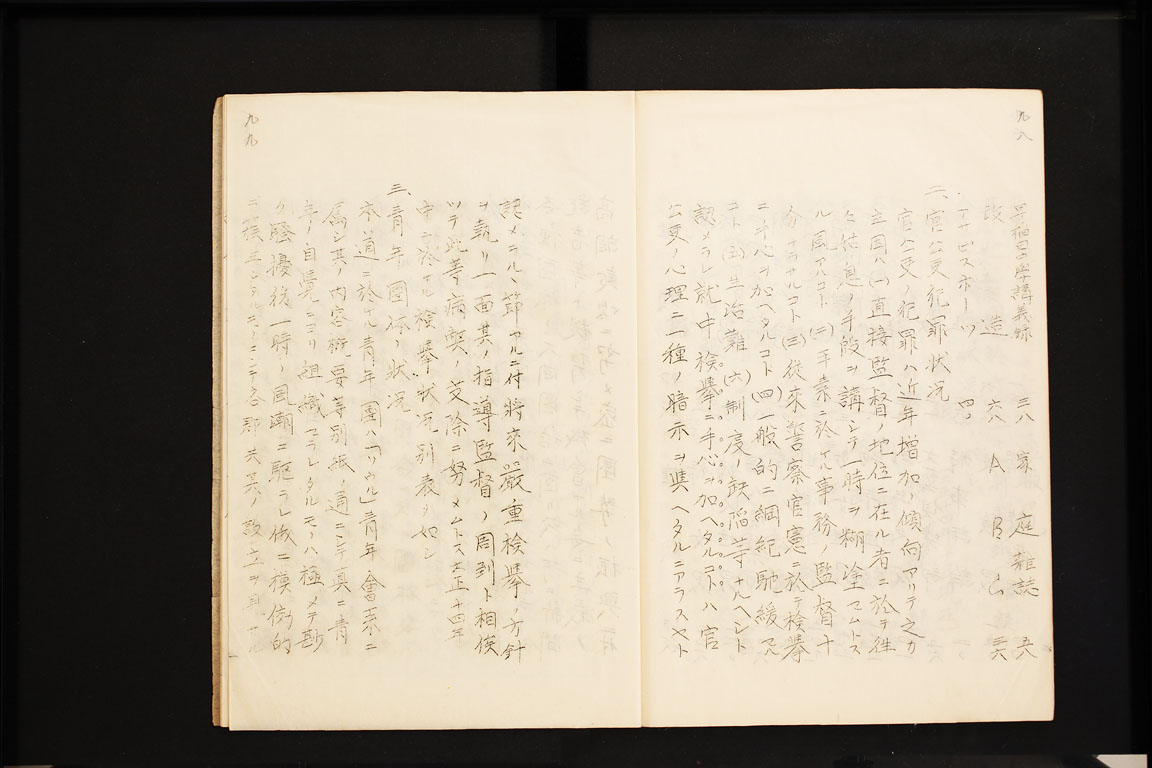 九八
早稲田大学講義録 三八 家庭雑誌 五八
改造 六八 A B C 三六
アサヒスポーツ 四〃
二、官公吏犯罪状况
官公吏ノ犯罪ハ近年増加ノ傾向アリテ之カ
主因ハ(一)直接監督ノ地位ニ在ル者ニ於テ往
々姑息ノ手段ヲ講シテ一時ヲ糊塗セムトス
ル風アルコト(二)平素ニ於ケル事務ノ監督十
分ナラサルコト(三)従来警察官憲ニ於テ検挙
ニ手心ヲ加ヘタルコト(四)一般的ニ綱紀弛緩セル
コト(五)生活難(六)制度ノ欠陥等ナルヘシト
認メラレ就中検挙ニ手心ヲ加ヘタルコトハ官
公吏ノ心理ニ一種ノ暗示ヲ與ヘタルニアラスヤト
九九
認メラルヽ節アルニ付将来厳重検挙ノ方針
ヲ執リ一面其ノ指導監督ノ周到ト相俟
ツテ此等病弊ノ芟除ニ努メムトス大正十四年
中ニ於ケル検挙状况別表ノ如シ
三、青年團体ノ状况
本道ニ於ケル青年團ハ「ソウル」青年會系ニ
属シ其ノ内容概要等別紙ノ通ニシテ真ニ青
年ノ自覚ニヨリ組織セラレタルモノハ極メテ尠
ク騒擾後一時ノ風潮ニ駆ラレ徒ニ模倣的
ニ簇立シタルモノニシテ各郡共其ノ設立ヲ見サル